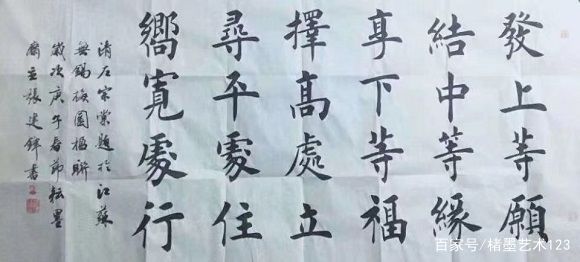 發上等願
結中等緣
享下等福
擇髙處立
尋平處住
嚮寬處行
清左宗棠題於江蘇
無錫梅園楹聯
歲次庚午春節耘墨
齋主張建書
百家号/楮墨艺术123